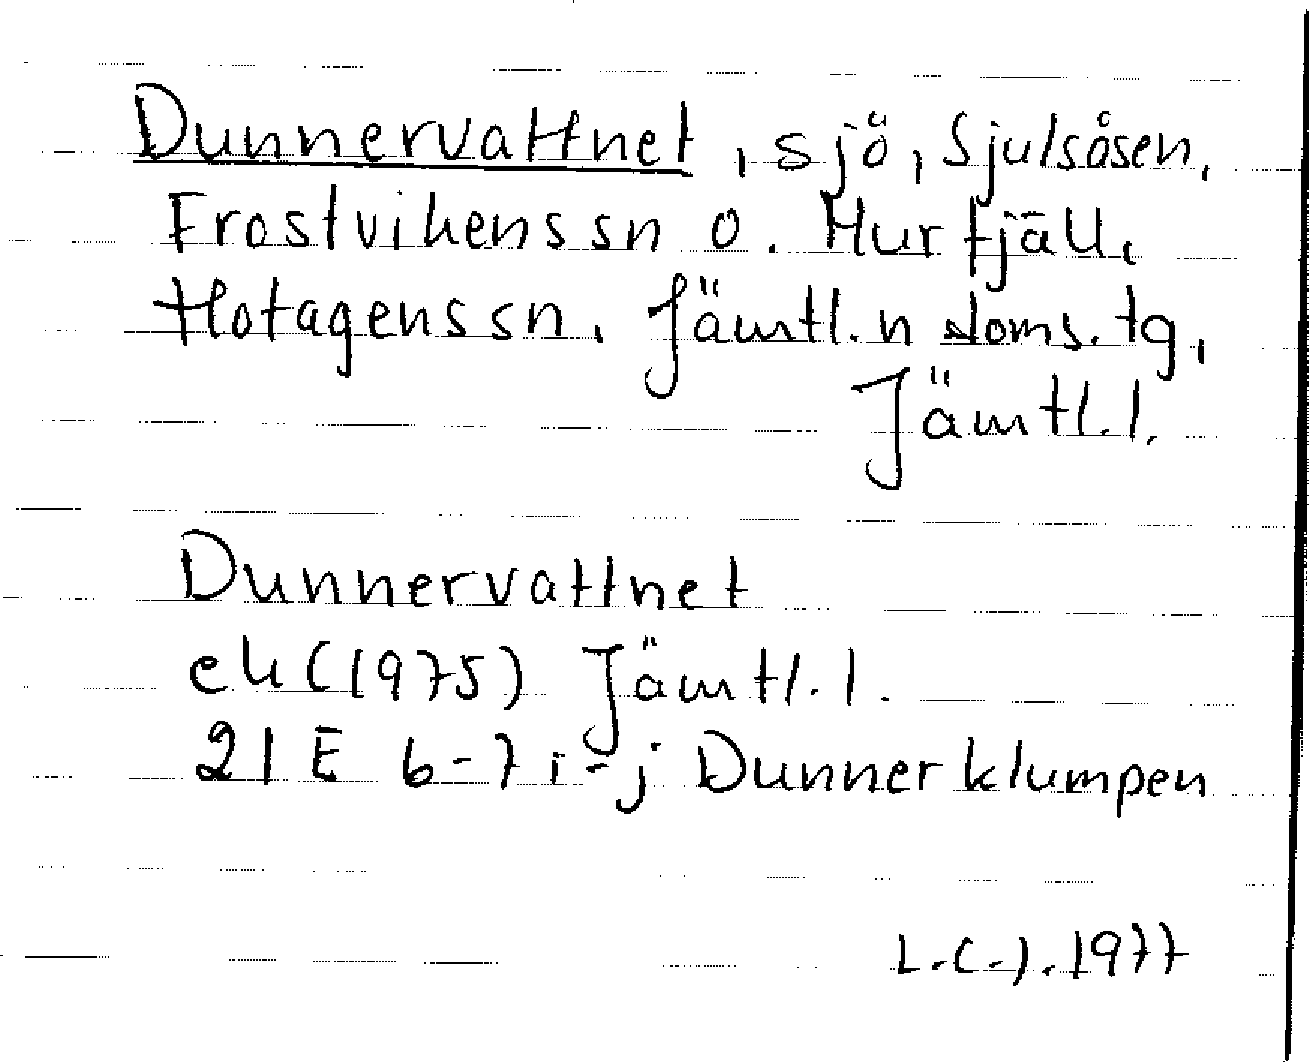 Dunnervattnet, sjö, Sjulsåsen,
Frostvikens sn o. Hurfjäll,
Hotagens sn, Jämtl. n doms. tg,
Jämtl. l.
Dunnervattnet
ek (1975) Jämtl. l.
21 E 6-7 i-j Dunnerklumpen
L.-C. J. 1977